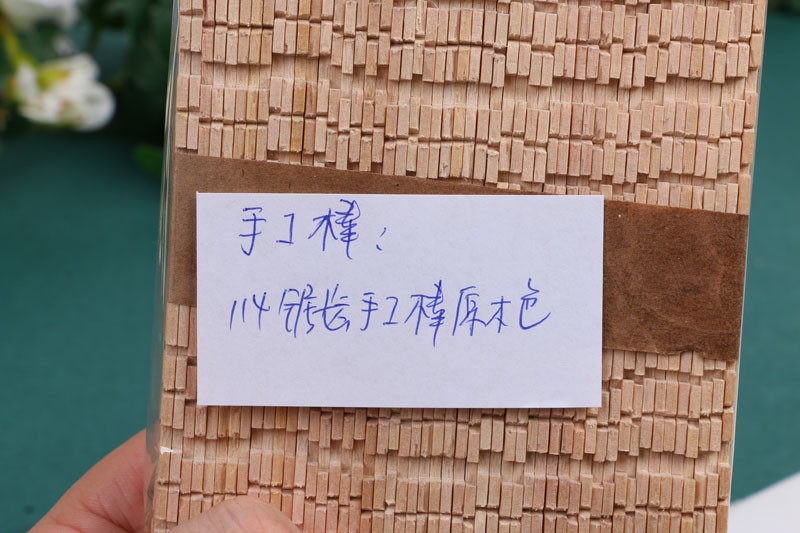 手工棒:
114锯齿手工棒原木色